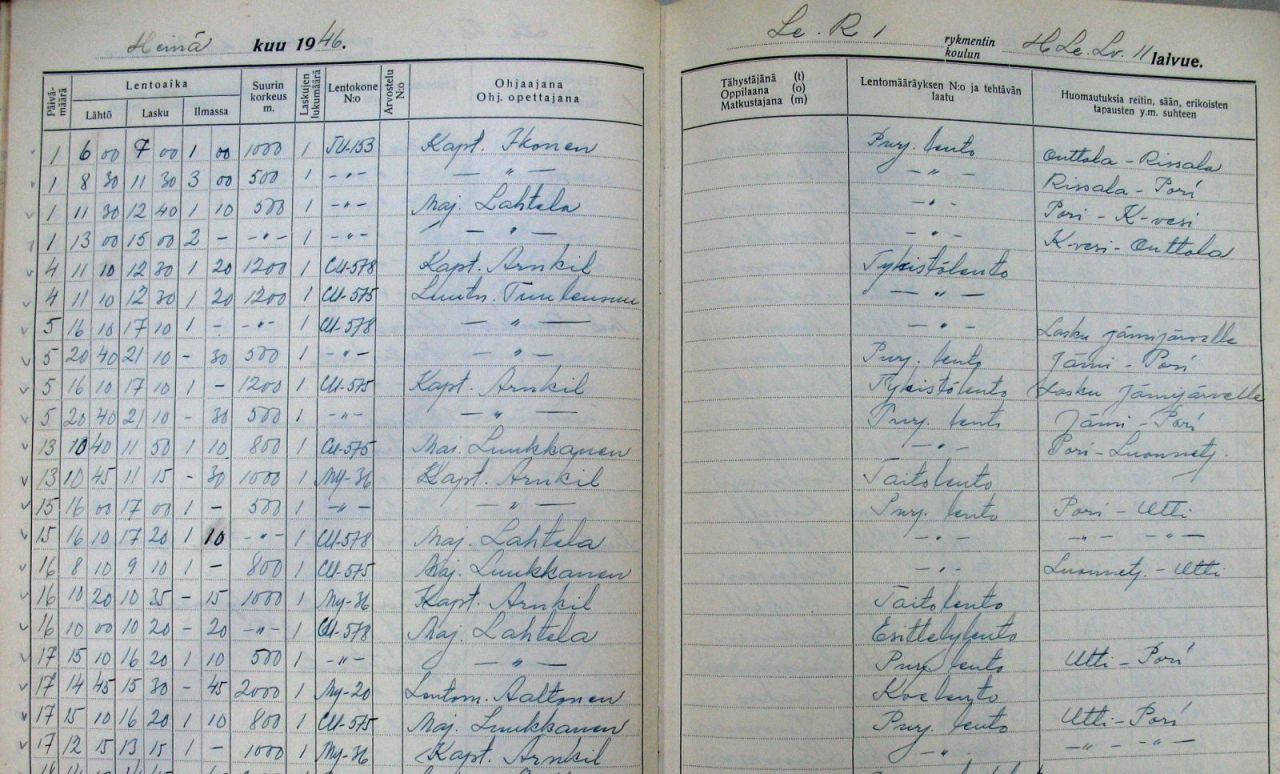 Heinä kuu 1946.
Le. R 1 rykmentin koulun H Le. Lv. 11 laivue.
Päivämäärä Lentoaika Lähtö Lasku Ilmassa Suurin korkeus m. Laskujen lukumäärä Lentokone N:o Arvostelu N:o Ohjaajana Ohj. opettajana
Tähystäjänä (t) Oppilaana (o) Matkustajana (m) Lentomääräyksen N:o ja tehtävän laatu Huomautuksia reitin, sään, erikoisten tapausten y.m. suhteen
1 6 00 7 00 1 00 1000 1 TU-153 Kapt. Ikonen Purj. lento Onttola - Rissala
1 8 30 11 30 3 00 500 1 -"- — " — — " — Rissala - Pori
1 11 30 12 40 1 10 500 1 -"- Maj. Lahtela -"- Pori - K-vesi
1 13 00 15 00 2 - -"- 1 -"- — " — -"- K-vesi - Onttola
4 11 10 12 30 1 20 1200 1 CU-578 Kapt. Arnkil Tykistölento
4 11 10 12 30 1 20 1200 1 CU-575 Luutn. — " —
5 16 10 17 10 1 - -"- 1 CU-578 — " — -"- Lasku Jämijärvelle
5 20 40 21 10 - 30 500 1 -"- — " — Purj. lento Jämi - Pori
5 16 10 17 10 1 - 1200 1 CU-575 Kapt. Arnkil Tykistölento Lasku Jämijärvelle
5 20 40 21 10 - 30 500 1 -"- — " — Purj. lento Jämi - Pori
13 10 40 11 50 1 10 800 1 CU-575 Maj. Luukkanen -"- Pori - Luonnetj.
13 10 45 11 15 - 30 1000 1 My-36 Kapt. Arnkil Taitolento
15 16 00 17 00 1 - 500 1 -"- — " — Purj. lento Pori - Utti
15 16 10 17 20 1 10 -"- 1 CU-578 Maj. Lahtela -"- -"- -"-
16 8 10 9 10 1 - 800 1 CU-575 Maj. Luukkanen -"- Luonnetj. - Utti
16 10 20 10 35 - 15 1000 1 My-36 Kapt. Arnkil Taitolento
16 10 00 10 20 - 20 -"- 1 CU-578 Maj. Lahtela Esittelylento
17 15 10 16 20 1 10 500 1 -"- — " — Purj. lento Utti - Pori
17 14 45 15 30 - 45 2000 1 My-20 Lentom. Aaltonen Koelento
17 15 10 16 20 1 10 800 1 CU-575 Maj. Luukkanen Purj. lento Utti - Pori
17 12 15 13 15 1 - 1000 1 My-36 Kapt. Arnkil -"- -"- -"-